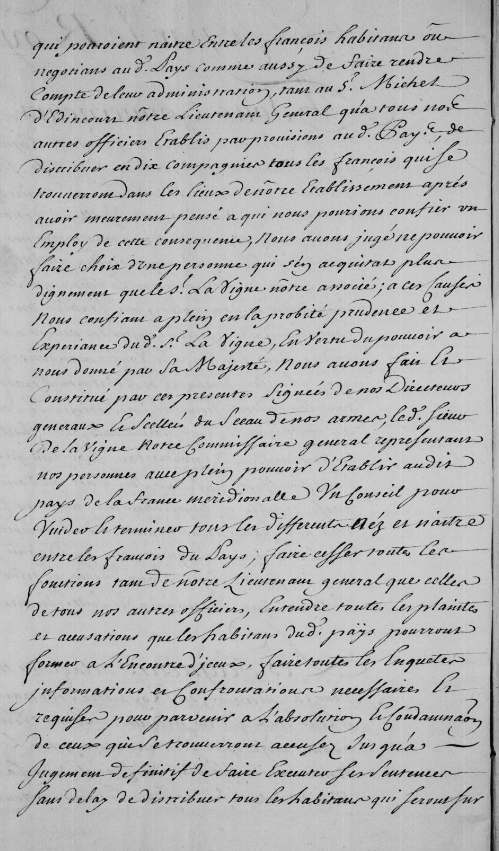 qui pouroient naitre Entre les françois habitans ou
negotians aud. Pays comme aussy de faire rendre
Compte de leur administration, tant au Sr. Michel
d'Edincourt nôtre Lieutenant General qu'a tous nos
autres officiers Etablis par provisions aud. Pays, de
distribuer en dix compagnies tous les françois qui se
trouverront dans les lieux de nôtre Etablissement aprés
avoir meurement pensé a qui nous pourions confier un
Employ de cette consequence, Nous avons jugé ne pouvoir
faire choix d'une personne qui s'en acquitat plus
dignement que le Sr. La Vigne nôtre associé; a ces Causes
Nous confiant a plein en la probité prudence et
Experiance dud. Sr. La Vigne, En Vertu du pouvoir a
nous donné par Sa Majesté, Nous avons fait Et
Constitué par ces presentes Signées de nos Directeurs
generaux Et Scellées du Sceau de nos armes, led. Sieur
De la Vigne Notre Commissaire general representant
nos personnes avec plein pouvoir d'Etablir audit
pays de la france meridionalle Un Conseil pour
Vuider Et terminer tous les differents néz et naitre
entre les francois du Pays; faire cesser toutes les
fonctions tant de nôtre Lieutenant general que celles
de tous nos autres officiers, Entendre toutes les plaintes
et accusations que les habitans dud. païs pourront
former a L'Encontre d'jeux, faire toutes les Enquetes
jnformations et Confrontations necessaires Et
requises pour parvenir a L'absolution Et Condamnaõn
de ceux qui se trouverront accusez Jusqu'a
Jugement definitif de faire Executer ses Sentences
sans delay de distribuer tous les habitans qui seront sur